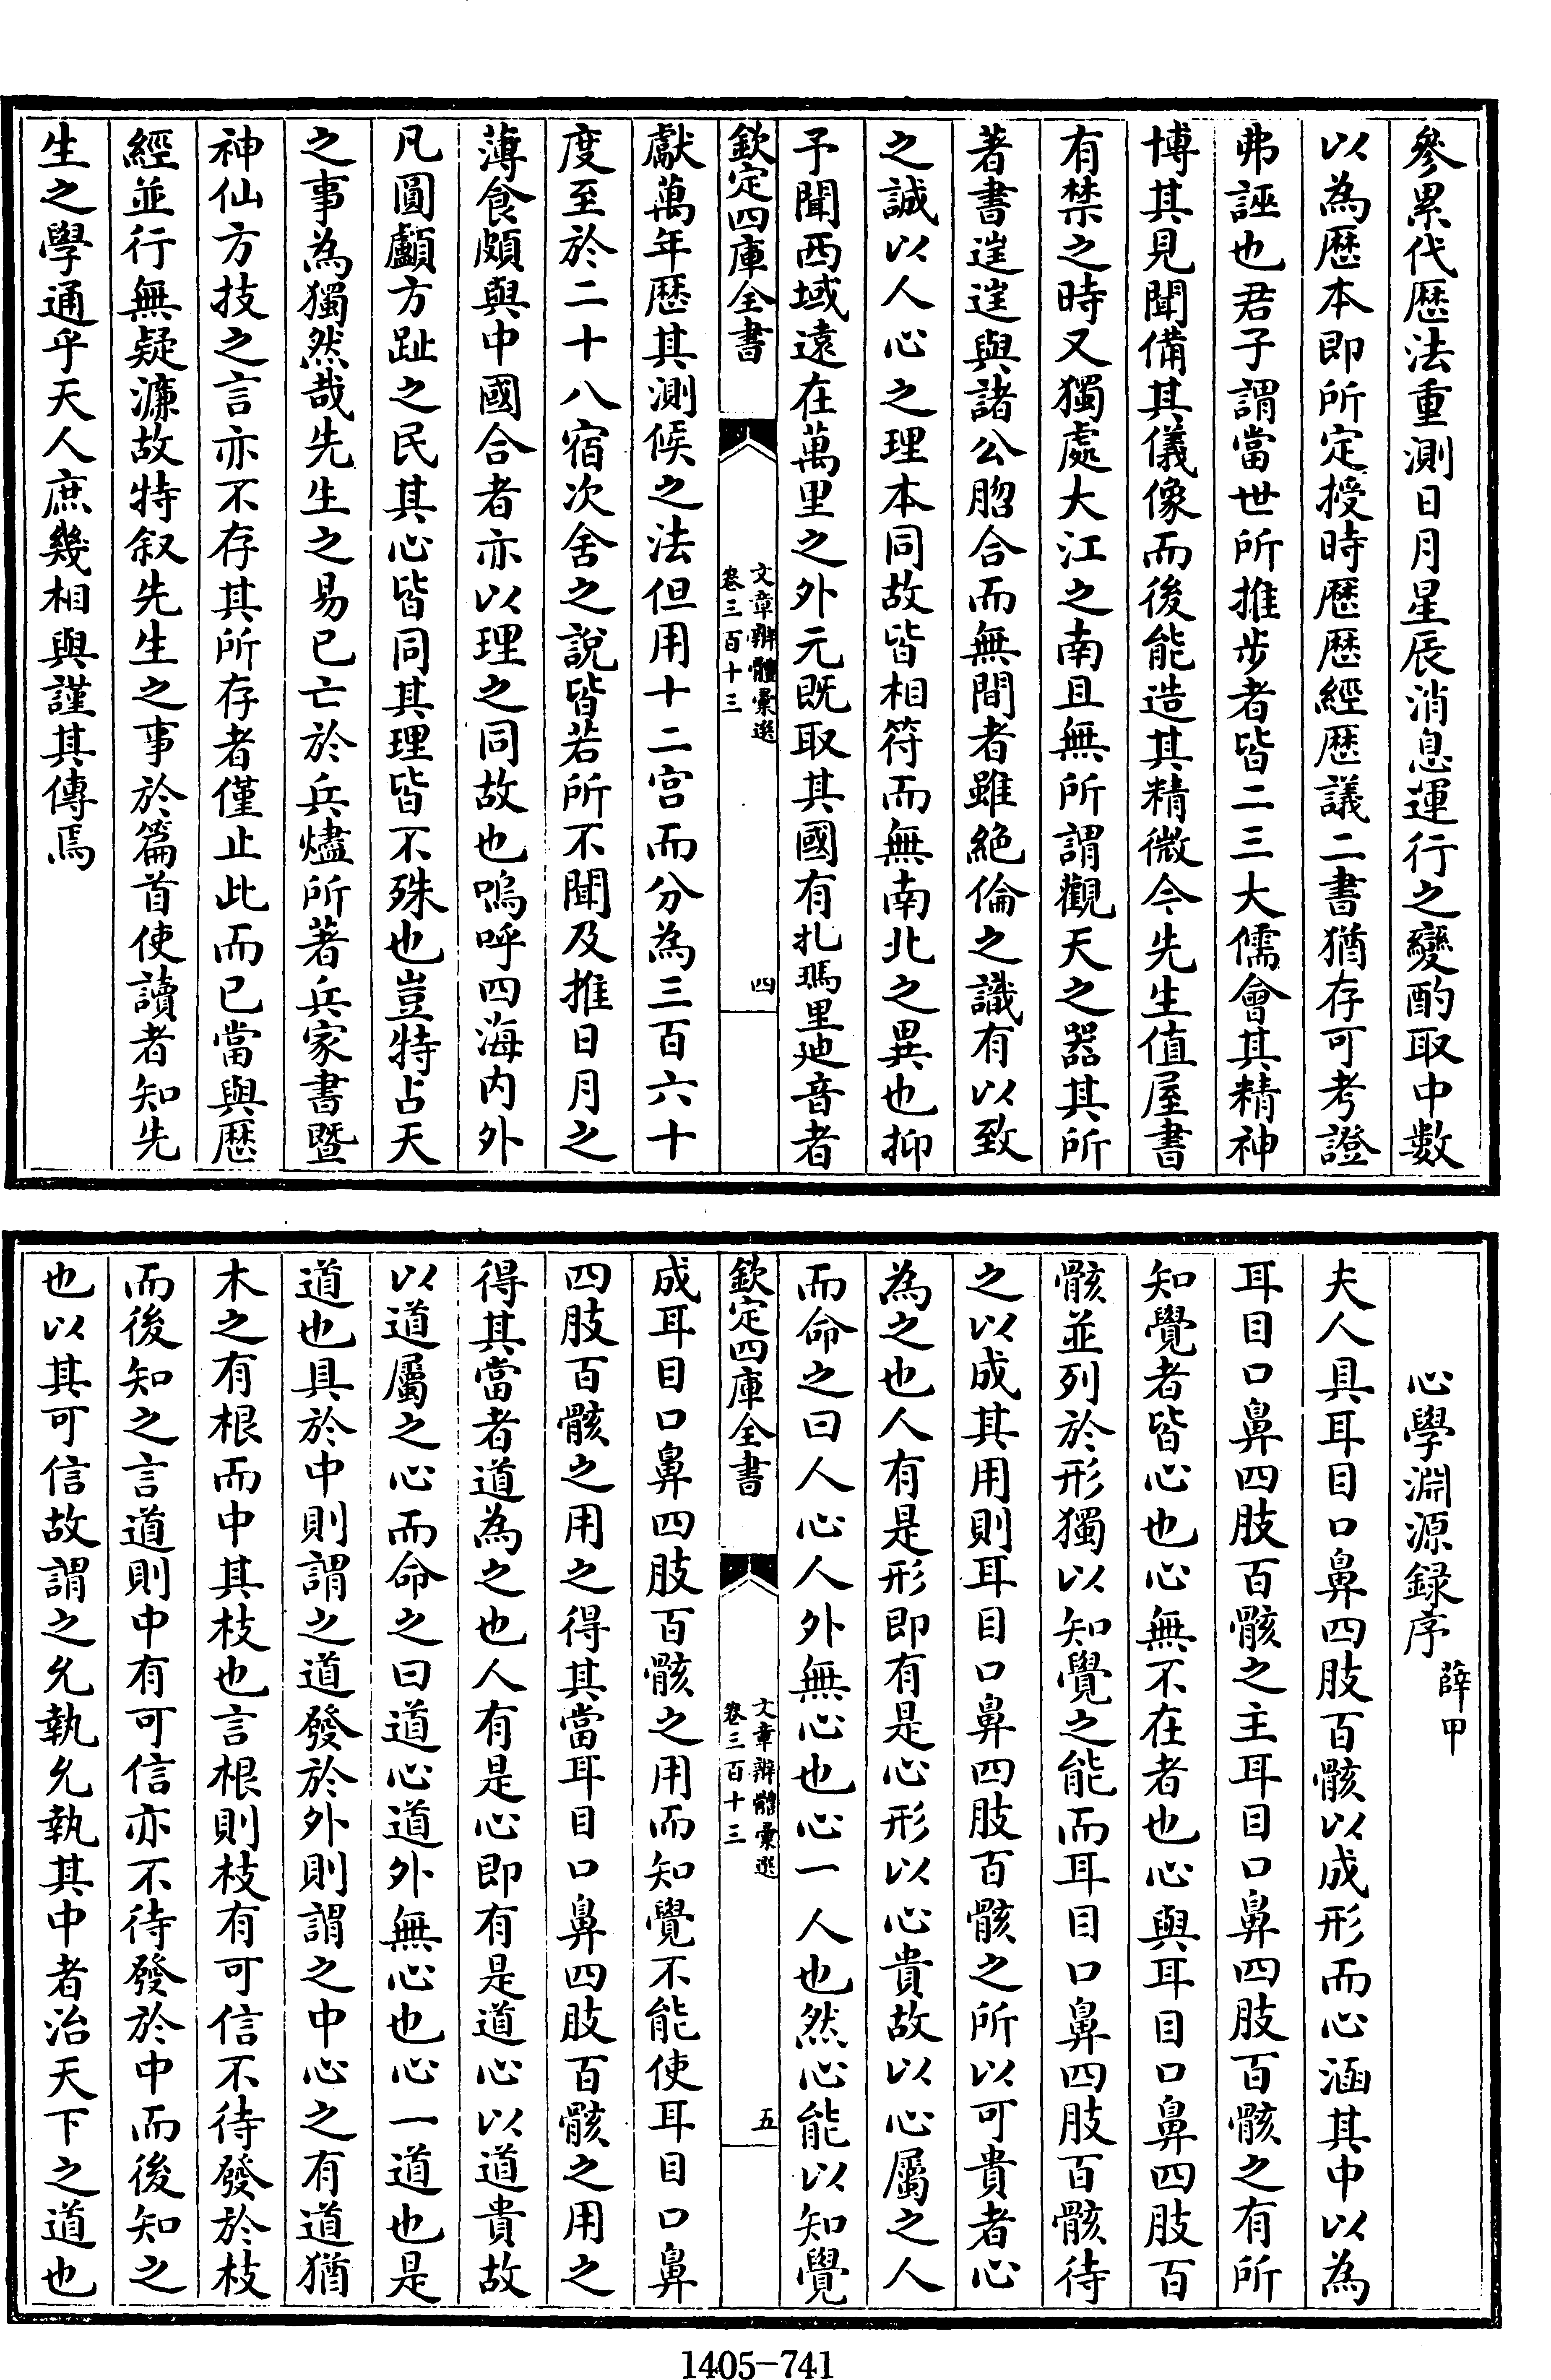 參累代歴法重測日月星辰消息運行之變酌取中數
以為歴本即所定授時歴歴經歴議二書猶存可考證
弗誣也君子謂當世所推步者皆二三大儒會其精神
博其見聞備其儀像而後能造其精微今先生值屋書
有禁之時又獨處大江之南且無所謂觀天之器其所
著書逹逹與諸公脗合而無間者雖絶倫之識有以致
之誠以人心之理本同故皆相符而無南北之異也抑
予聞西域遠在萬里之外元既取其國有扎瑪里廸音者
欽定四庫全書
文章辨體彙選
卷三百十三
四
獻萬年歴其測候之法但用十二宫而分為三百六十
度至於二十八宿次舍之說皆若所不聞及推日月之
薄食頗與中國合者亦以理之同故也嗚呼四海内外
凡圓顱方趾之民其心皆同其理皆不殊也豈特占天
之事為獨然哉先生之易已亡於兵燼所著兵家書暨
神仙方技之言亦不存其所存者僅止此而已當與歴
經並行無疑濂故特叙先生之事於篇首使讀者知先
生之學通乎天人庶幾相與謹其傳焉
心學淵源録序 薛甲
夫人具耳目口鼻四肢百骸以成形而心涵其中以為
耳目口鼻四肢百骸之主耳目口鼻四肢百骸之有所
知覺者皆心也心無不在者也心與耳目口鼻四肢百
骸並列於形獨以知覺之能而耳目口鼻四肢百骸待
之以成其用則耳目口鼻四肢百骸之所以可貴者心
為之也人有是形即有是心形以心貴故以心屬之人
而命之曰人心人外無心也心一人也然心能以知覺
欽定四庫全書
文章辨體彙選
卷三百十三
五
成耳目口鼻四肢百骸之用而知覺不能使耳目口鼻
四肢百骸之用之得其當耳目口鼻四肢百骸之用之
得其當者道為之也人有是心即有是道心以道貴故
以道屬之心而命之曰道心道外無心也心一道也是
道也具於中則謂之道發於外則謂之中心之有道猶
木之有根而中其枝也言根則枝有可信不待發於枝
而後知之言道則中有可信亦不待發於中而後知之
也以其可信故謂之允執允執其中者治天下之道也
1405-741